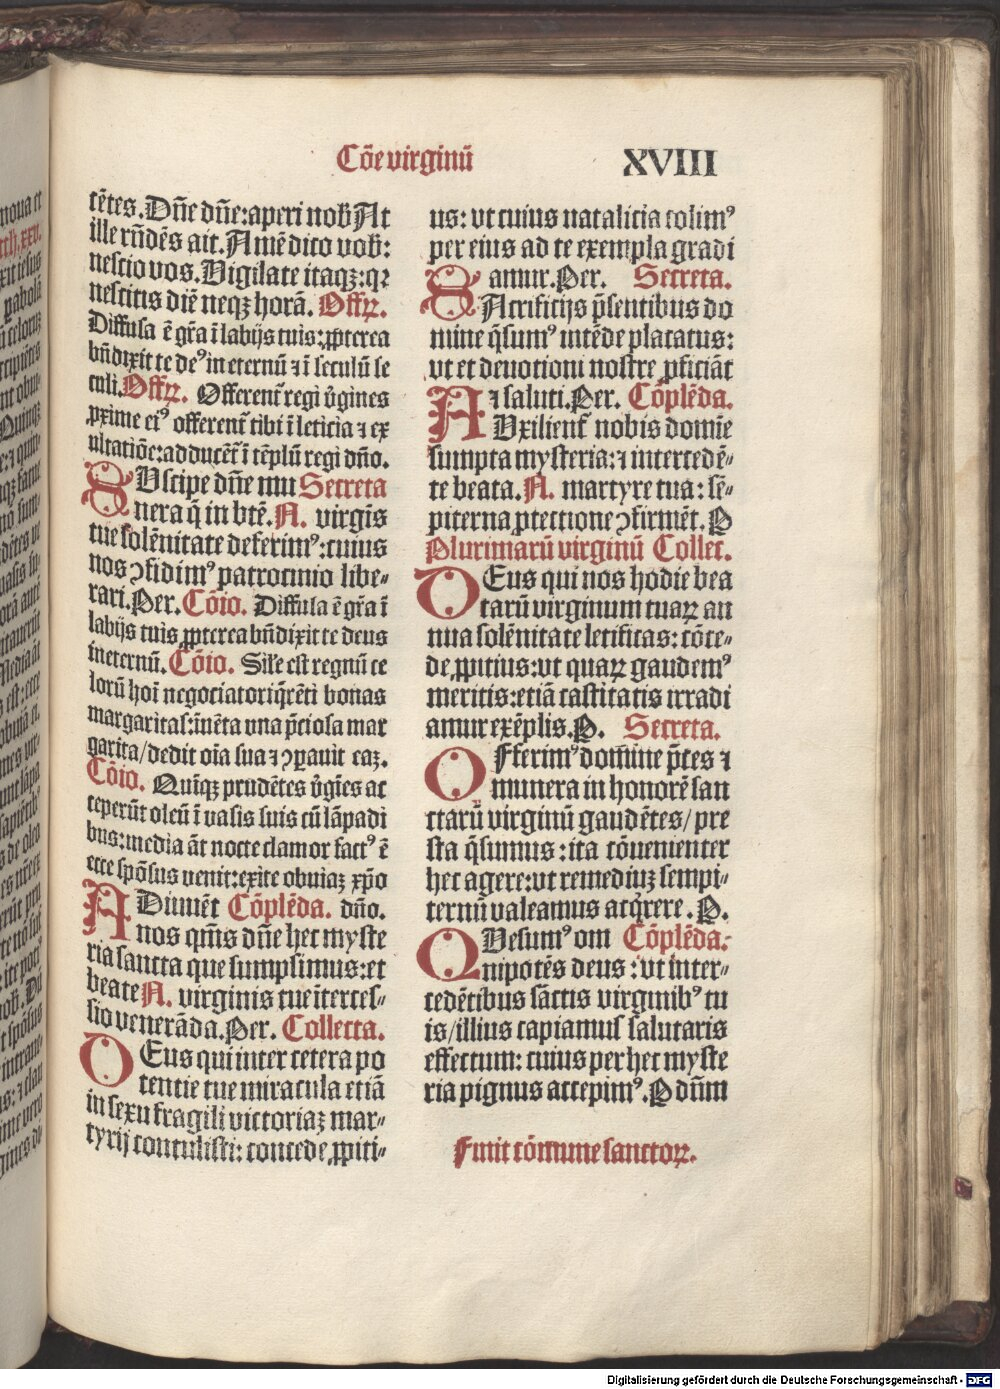 Cōe virginū
XVIII
tētes. Dn̄e dn̄e: aperi nob̄ At
ille rn̄dēs ait. Amē dico vob̄:
nescio vos. Vigilate itaqꝫ: qꝛ
nescitis diē neqꝫ horā. Offꝝ.
Diffusa ē gr̄a ī labijs tuis: ꝓpterea
bn̄dixit te deꝰ in eternū ⁊ ī seculū se
culi. Offꝝ. Offerent᷑ regi v̓gines
ꝓxime eiꝰ offerent᷑ tibi ī leticia ⁊ ex
ultatiōe: adducēt᷑ ī tēplū regi dn̄o.
SVscipe dn̄e mu Secreta
nera q̄ in btē. N. virgīs
tue solēnitate deferimꝰ: cuius
nos ꝯfidimꝰ patrocinio libe⸗
rari. Per. Cōio. Diffusa ē gr̄a ī
labijs tuis ꝓpterea bn̄dixit te deus
ineternū. Cōio. Sil̄e est regnū ce
lorū hoī negociatori q̄rēti bonas
margaritas: īnēta vna p̄ciosa mar
garita/ dedit oīa sua ⁊ ꝯparauit eaꝫ.
Cōio. Quīqꝫ prudētes v̓gīes ac
ceperūt oleū ī vasis suis cū lāpadi
bus: media āt nocte clamor factꝰ ē
ecce spōsus venit: exite obuiaꝫ xp̄o
ADiuuēt Cōplēda. dn̄o.
nos qm̄s dn̄e hec myste
ria sancta que sumpsimus: et
beate N. virginis tue īterces⸗
sio venerāda. Per. Collecta.
DEus qui inter cetera po
tentie tue miracula etiā
in sexu fragili victoriaꝫ mar⸗
tyrij contulisti: concede ꝓpiti⸗
us: vt cuius natalicia colimꝰ
per eius ad te exempla gradi
amur. Per. Secreta.
SAcrificijs p̄sentibus do
mine q̄sumꝰ intēde placatus:
vt et deuotioni nostre ꝓficiāt
⁊ saluti. Per. Cōplēda.
AVxilient᷑ nobis domīe
sumpta mysteria: ⁊ intercedē⸗
te beata. N. martyre tua: sē⸗
piterna ꝓtectione ꝯfirmēt. P
Plurimarū virginū Collec.
DEus qui nos hodie bea
tarū virginum tuaꝝ an
nua solēnitate letificas: cōce⸗
de ꝓpitius: vt quaꝝ gaudemꝰ
meritis: etiā castitatis irradi
amur exēplis. P. Secreta.
OFferimꝰ domine p̄ces ⁊
munera in honorē san
ctarū virginū gaudētes/ pre
sta q̄sumus: ita cōuenienter
hec agere: vt remediuꝫ sempi⸗
ternū valeamus acq̄rere. P.
QVesumꝰ om Cōplēda:
nipotēs deus: vt inter⸗
cedētibus sāctis virginibꝰ tu
is/ illius capiamus salutaris
effectum: cuius per hec myste
ria pignus accepimꝰ. P dn̄m
Finit cōmune sanctoꝝ.
Digitalisierung gefördert durch die Deutsche Forschungsgemeinschaft - DFG